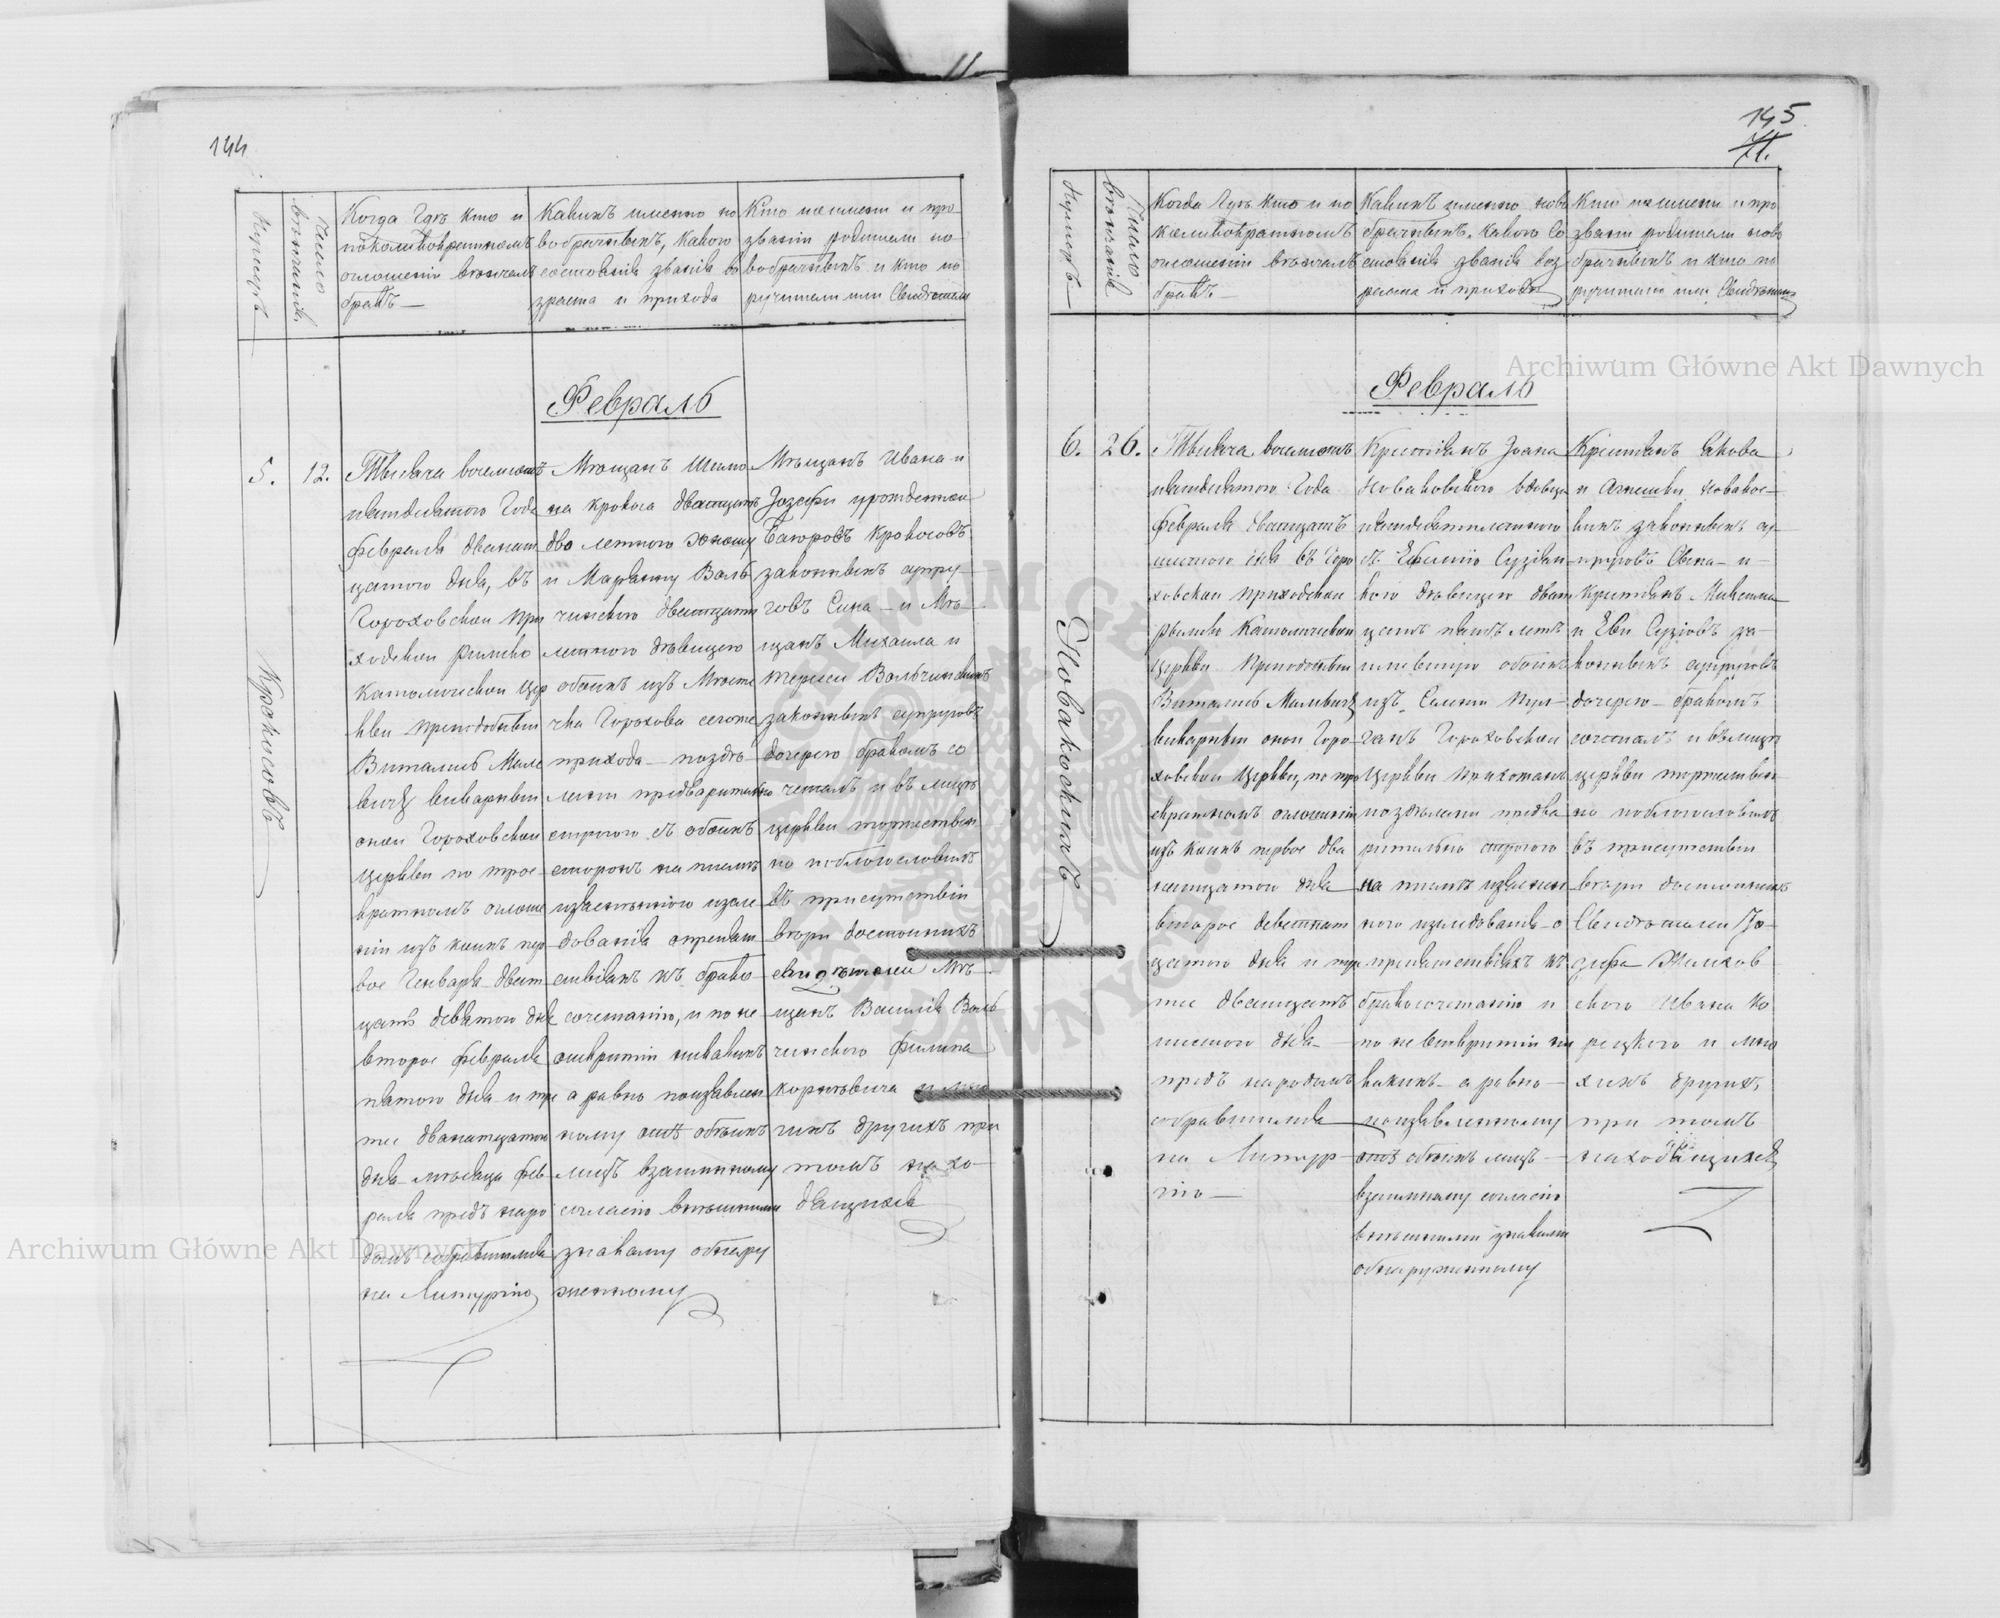 144
Нумеръ
Число
вѣнчанія
Когда Гдѣ кто и
покаликовратномъ
оглошеніи вѣнчалъ
бракъ —
Какихъ именно но
вобрачныхъ, какого
состоянія званія во
зраста и прихода
Кто имянем и про
званіи родители но-
вобрачныхъ и кто по
ручители или Свидѣтели
Февраль
5.
12.
Крокосовъ
Тысяча восемсотъ
пятдесятого Года
Февраля двенат
цатого дня, въ
Гороховской При
ходской Римско
Католической Цер
кви Преподобный
Виталисъ Миле
вичъ викарный
оной Гороховской
Церкви по трое
кратномъ оглоше
ніи изъ коихъ пер
вое Генваря дват
цать девятого дня
второе Февраля
пятого дня и тре
тее двенатцатого
дня мѣсяца Фев
раля предъ наро
домъ собравшимся
на Литургію
Мѣщанъ Шимо
на Крокоса двадцать
дво летного юношу
и Маріанну Валь
чинскою двадцати
летного дѣвицею
обоихъ изъ Мѣсте
чка Горохова сегоже
прихода — поздѣ
лании предварительно
строгого съ обоихъ
сторонъ на письмѣ
извесненного изсле
дованія препят
ствіяхъ къ брако
сочетанію, и по не
открытіи никакихъ
а равно поизъявлен
ному отъ обоихъ
лицъ взаимному
согласію внешними
знаками обнару
женному
Мѣщанъ Ивана и
Іозефы урожденной
Багровъ Крокосовъ
законныхъ супру
говъ Сына — и Мѣ-
щанъ Михаила и
Терезіи Вальчинскихъ
законныхъ супруговъ
дочерею бракомъ со
четалъ и въ лицѣ
церкви торжествен
но поблогословилъ
въ присутствіи
вѣры достойнихъ
свидѣтелей Мѣ-
щанъ Василія Валь
чинского Филипа
Корнѣвича и мно
гихъ другихъ при
томъ нахо-
дящихся
145
71.
Нумеръ —
Число
вѣнчанія
Когда Гдѣ кто и по
каликовратномъ
оглошеніи вѣнчалъ
бракъ —
Какихъ именно ново
брачныхъ, какого Со
стоянія званія воз
раста и прихода
Кто имянем и про
званіи родители ново
брачныхъ и кто по
ручители или Свидѣтели
Февраль
6.
26.
Новаковскихъ
Тысяча восемсотъ
пятдесятого Года
Февраля двадцать
шестого дня въ Горо
ховской Приходской
Римско Католической
Церкви Преподобный
Виталисъ Милевичъ
викарный оной Горо-
ховской Церкви, по трое
кратномъ оглошеніи
изъ коихъ первое два
натцатого дня
второе деветнат
цатого дня и тре
тее двадцать
шестого дня
предъ народомъ
собравшимся
на Литур-
гію —
Крестьянъ Іоана
Новаковского вдовца
пятдесятилетного
съ Ефимію Сузіян
кою дѣвицею двад
цать пять летъ
имевшую обоихъ
изъ Селенія Пул-
ганъ Гороховской
Церкви Прихожанъ
поздѣлании предва
рительно строгого
на письмѣ извеснен
ного изследованія о
препятствіяхъ къ
бракосочетанію и
по не вскрытіи ни
какихъ — а равно —
поизъявленному
отъ обоихъ лицъ —
взаимному согласію
внешними знаками
обнаруженному
Крестьянъ Якова
и Агнешки Новаков-
скихъ законныхъ су-
пруговъ Сына — и —
Крестьянъ Миксима
и Евы Сузіовъ за-
конныхъ супруговъ
дочерею — бракомъ
сочеталъ и въ лицѣ
церкви торжествен-
но поблогословилъ
въ присутствіи
вѣры достойнихъ
Свидѣтелей Іо-
зефа Жилков
ского Ивана Ко
рецкого и мно
гихъ другихъ,
при томъ
находящихся